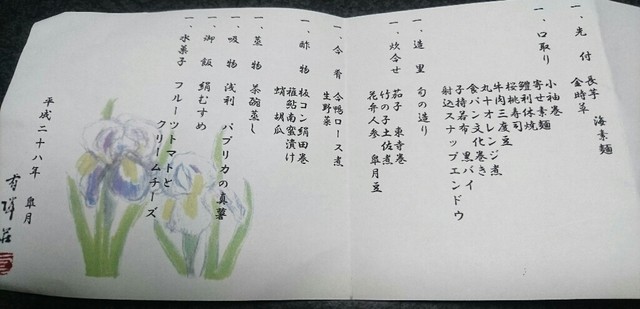 一、光付 長芋 海素麺
金時草
一、口取り 小袖巻
寄せ素麺
鱧利休焼
桜桃寿司
牛肉三度豆
丸十オレンジ煮
食パン文化巻き
子持若布 黒バイ
射込スナップエンドウ
一、造里 旬の造り
一、炊合せ 茄子 東寺巻
竹の子土佐煮
花弁人参 皐月豆
一、合肴 合鴨ロース煮
生野菜
一、酢物 板コン絹田巻
稚鮎南蛮漬け
蛸 胡瓜
一、蒸物 茶碗蒸し
一、吸物 浅利 パプリカの真薯
一、御飯 絹むすめ
一、水菓子 フルーツトマトと
クリームチーズ
平成二十八年 皐月